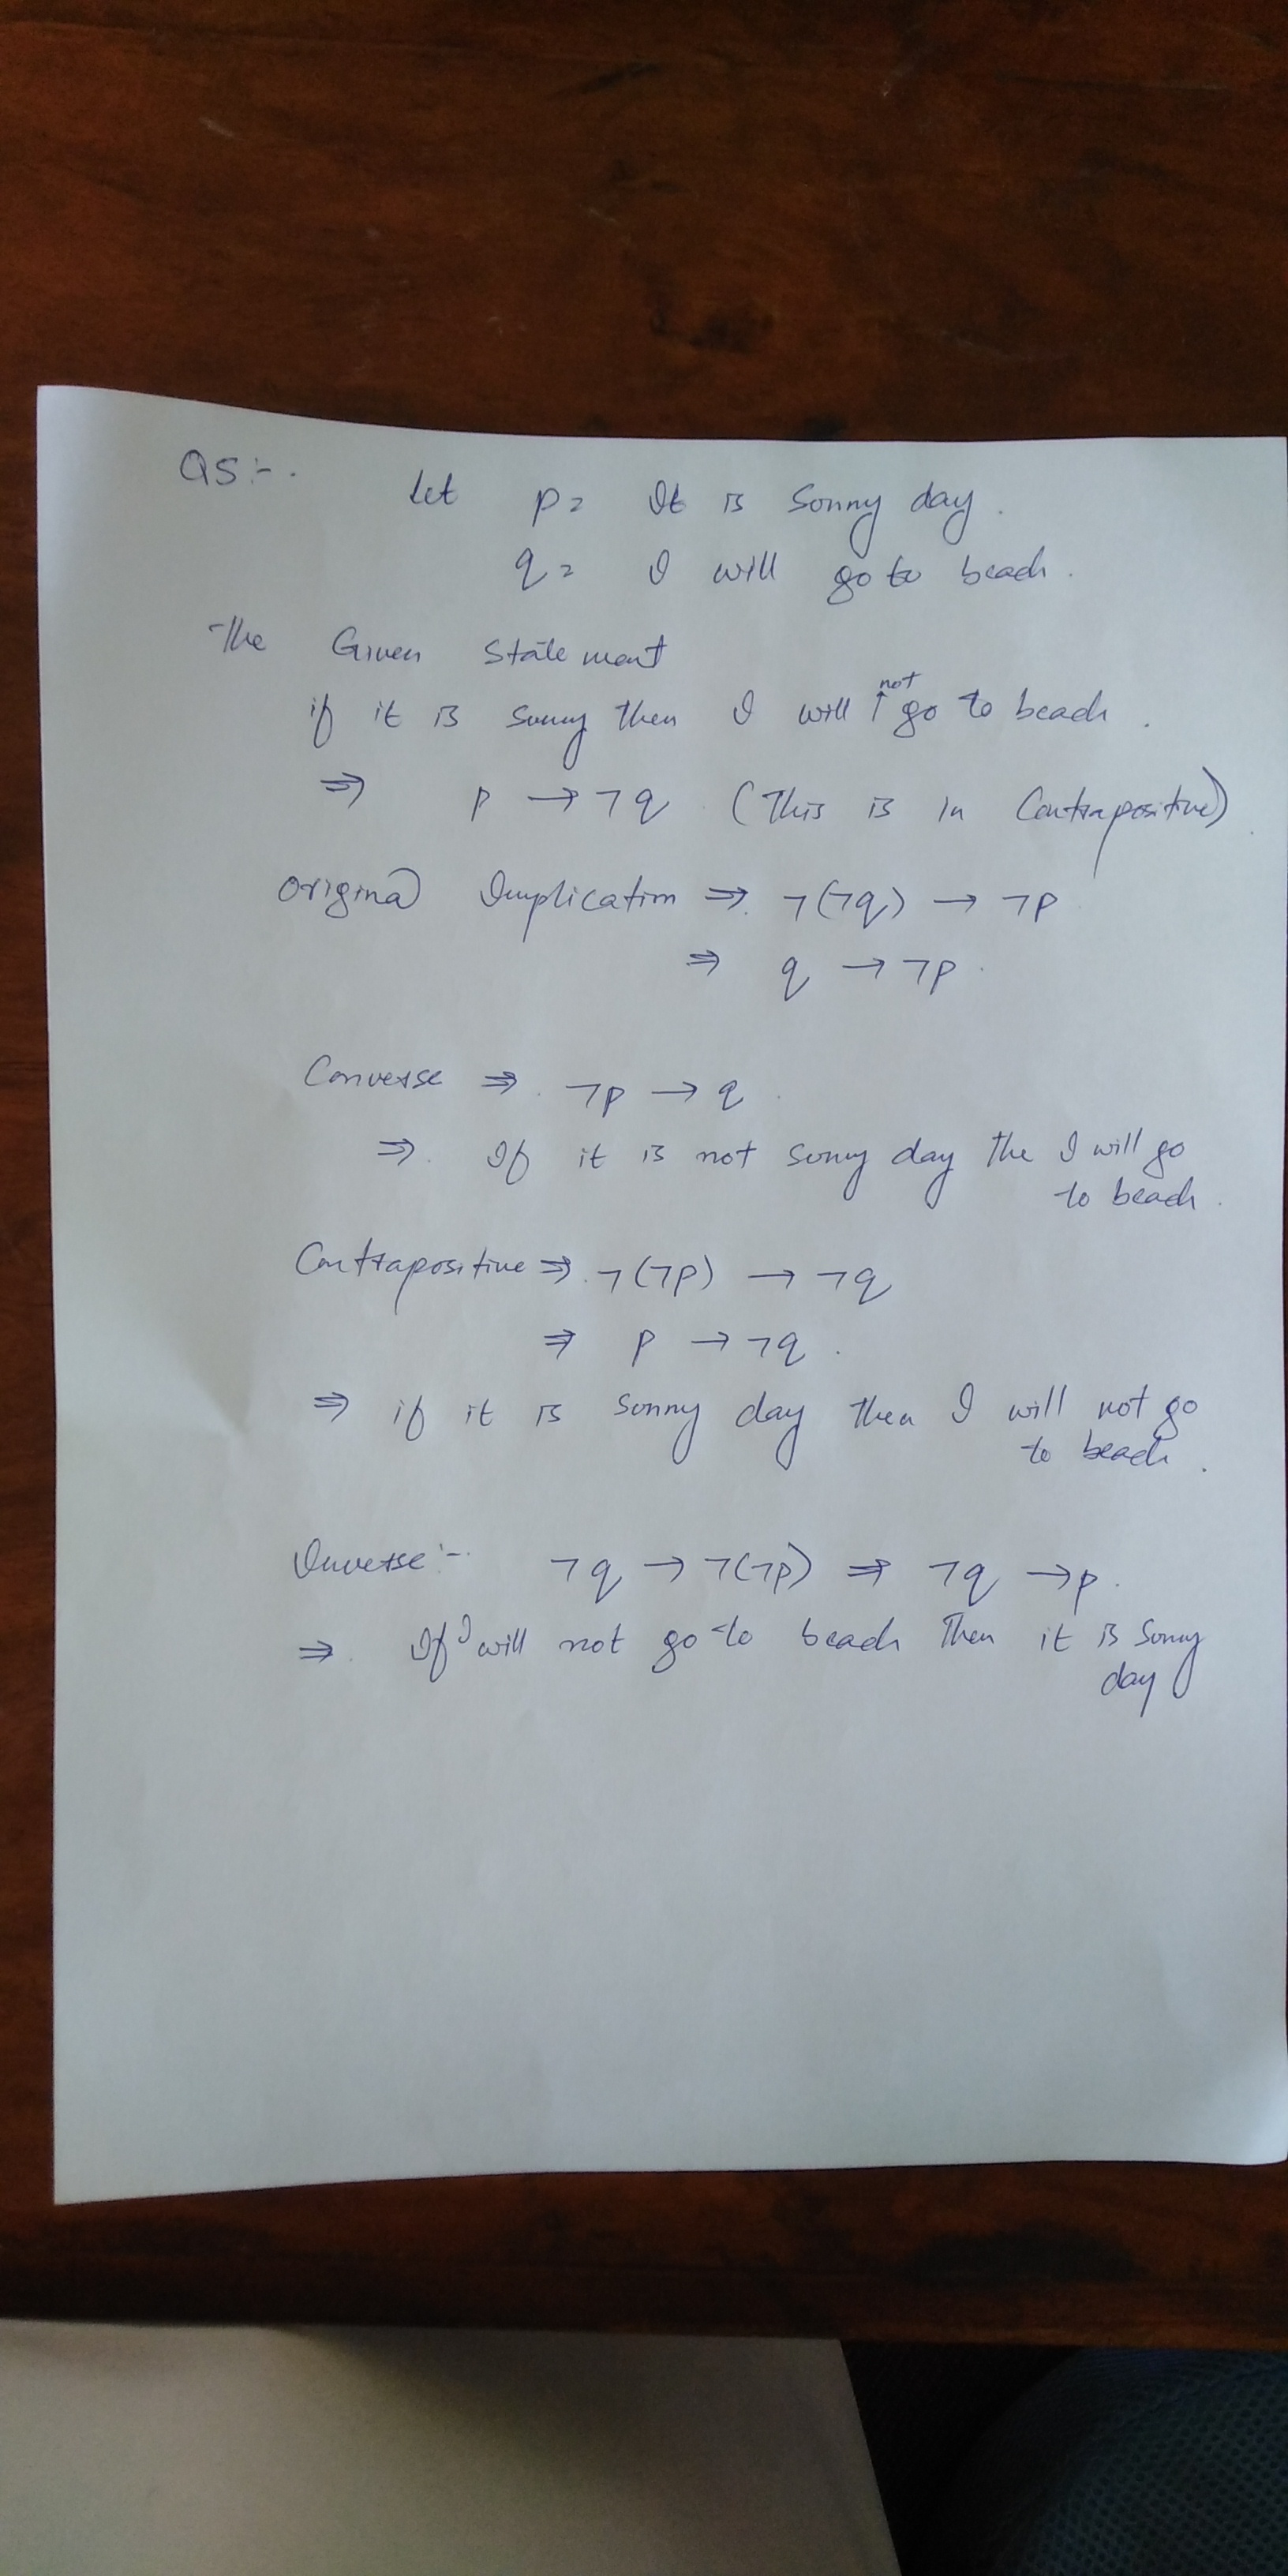 Q5:-.
Let p = It is Sonny day.
q = I will go to beach.
The Given Statement
if it is sunny then I will ↑not go to beach.
⇒ p → ¬q (This is in Contrapositive)
Original Implication ⇒ ¬(¬q) → ¬p
⇒ q → ¬p.
Converse ⇒ ¬p → q
⇒ If it is not sunny day the I will go
to beach.
Contrapositive ⇒ ¬(¬p) → ¬q
⇒ p → ¬q.
⇒ if it is sonny day then I will not go
to beach.
Inverse:- ¬q → ¬(¬p) ⇒ ¬q → p.
⇒ If I will not go to beach then it is sonny
day